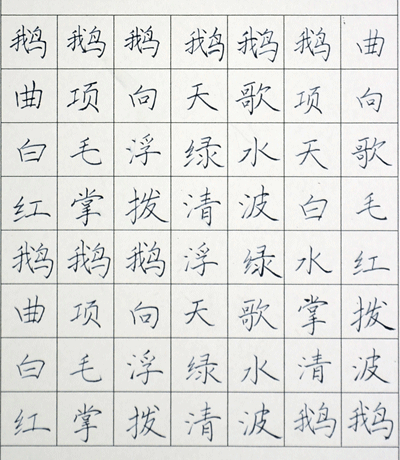 鹅鹅鹅鹅鹅鹅曲
曲项向天歌项向
白毛浮绿水天歌
红掌拨清波白毛
鹅鹅鹅浮绿水红
曲项向天歌掌拨
白毛浮绿水清波
红掌拨清波鹅鹅